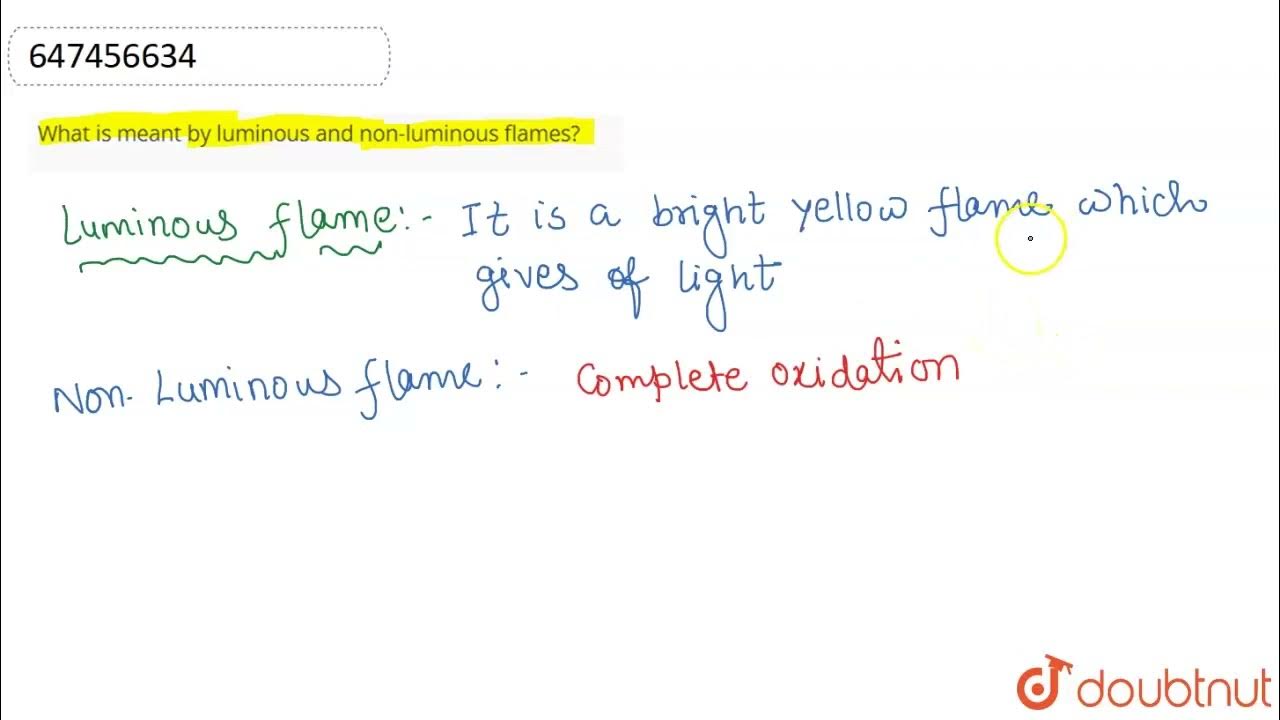 647456634
What is meant by luminous and non-luminous flames?
Luminous flame:- It is a bright yellow flame which
gives of light
Non-Luminous flame:- Complete oxidation
doubtnut